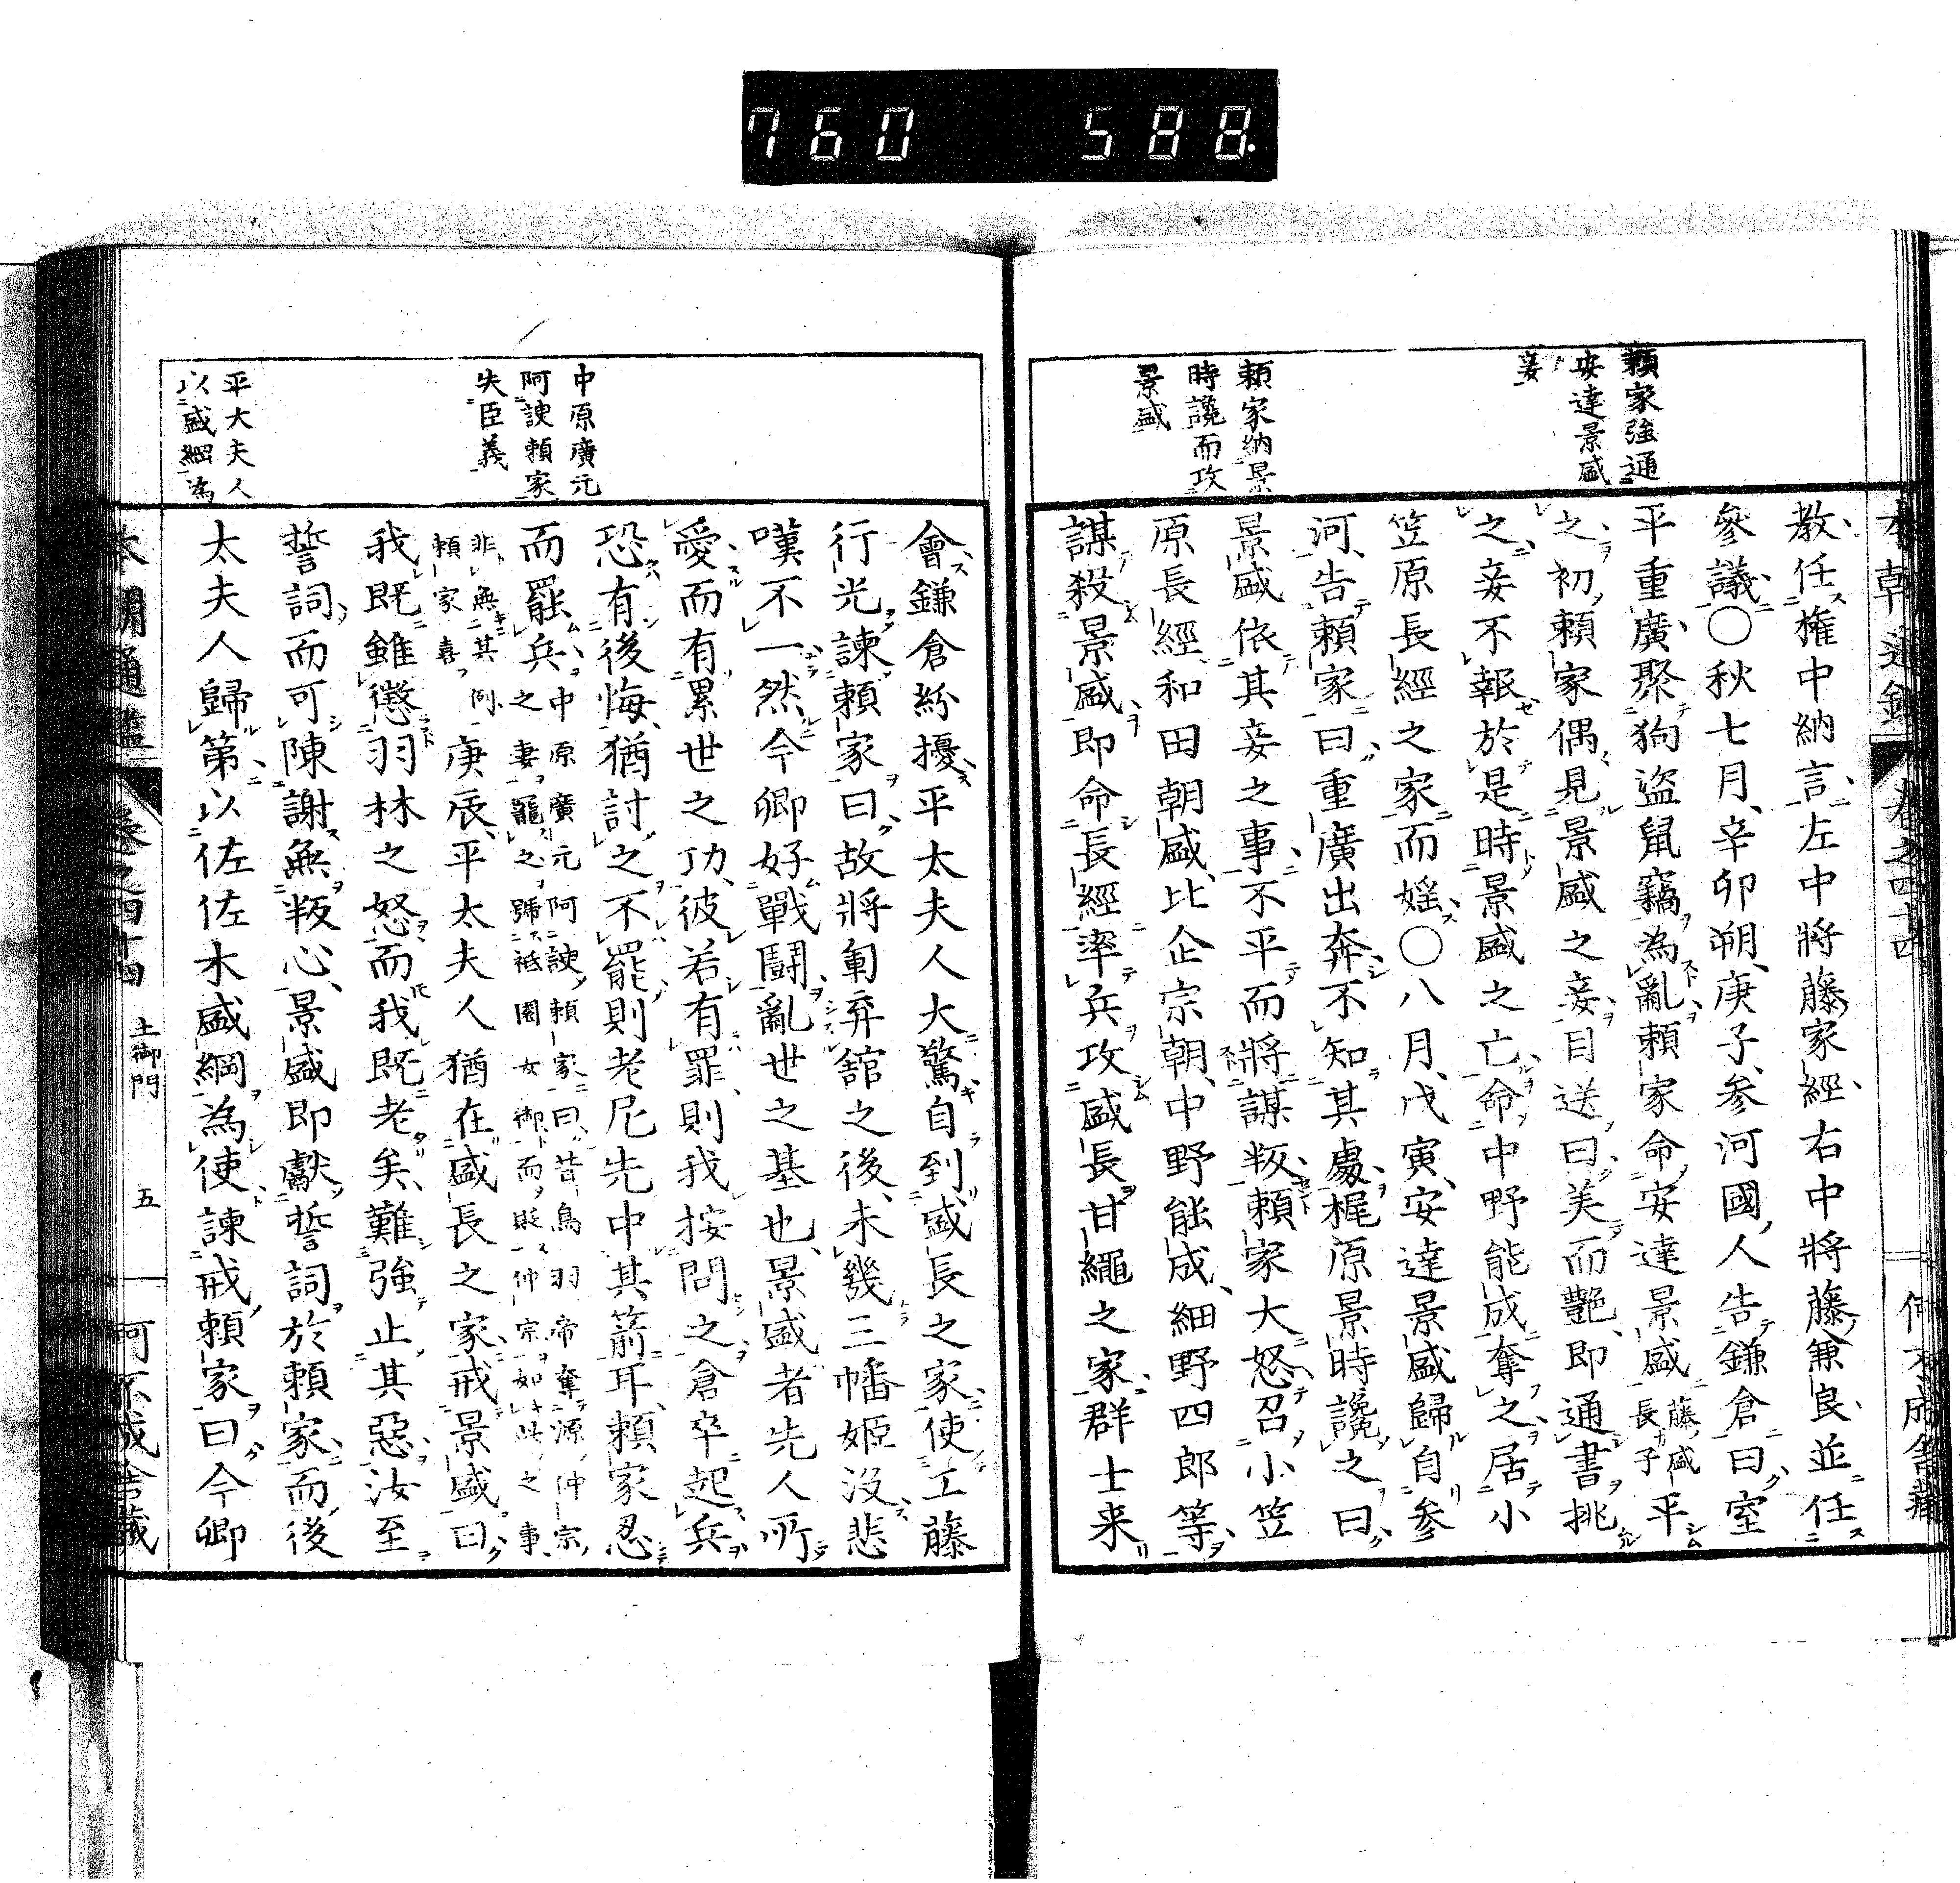 760 588.
頼家強通
安達景盛
妾
頼家納景
時讒而攻
景盛
教任権中納言左中將藤家經右中將藤兼良並任
參議〇秋七月、辛卯朔、庚子、参河國人告鎌倉曰室
平重廣聚狗盗鼠竊為亂頼家命安達景盛藤盛長子平
之初頼家偶見景盛之妾目送曰美而艶即通書挑
之妾不報於是時景盛之亡命中野能成奪之居小
笠原長經之家而婬〇八月、戊寅、安達景盛歸自参
河告頼家曰重廣出奔不知其處梶原景時讒之曰
景盛依其妾之事不平而將謀叛頼家大怒召小笠
原長經、和田朝盛、比企宗朝、中野能成、細野四郎等
謀殺景盛即命長經率兵攻盛長甘繩之家群士来
本朝通鑑 卷之四十四
何不成舎藏
中原廣元
阿諛頼家
失臣義
平大夫人
以盛綱為
會鎌倉紛擾平太夫人大驚自到盛長之家使工藤
行光諫頼家曰故將軍弃舘之後、未幾三幡姫没悲
嘆不一然今卿好戰鬪亂世之基也、景盛者先人所
愛而有累世之功、彼若有罪、則我按問之倉卒起兵
恐有後悔、猶討之不罷則老尼先中其箭耳、頼家忍
而罷兵中原廣元阿諛頼家曰昔鳥羽帝奪源仲宗
之妻寵之號祗園女御而貶仲宗如此之事、
非無其例
頼家喜庚辰、平太夫人猶在盛長之家戒景盛曰
我既雖懲羽林之怒而我既老矣、難強止其惡汝至
誓詞而可陳謝無叛心、景盛即獻誓詞於頼家而後
太夫人歸第以佐佐木盛綱為使諫戒頼家曰今卿
本朝通鑑 卷之四十四 土御門 五 何不成舎藏